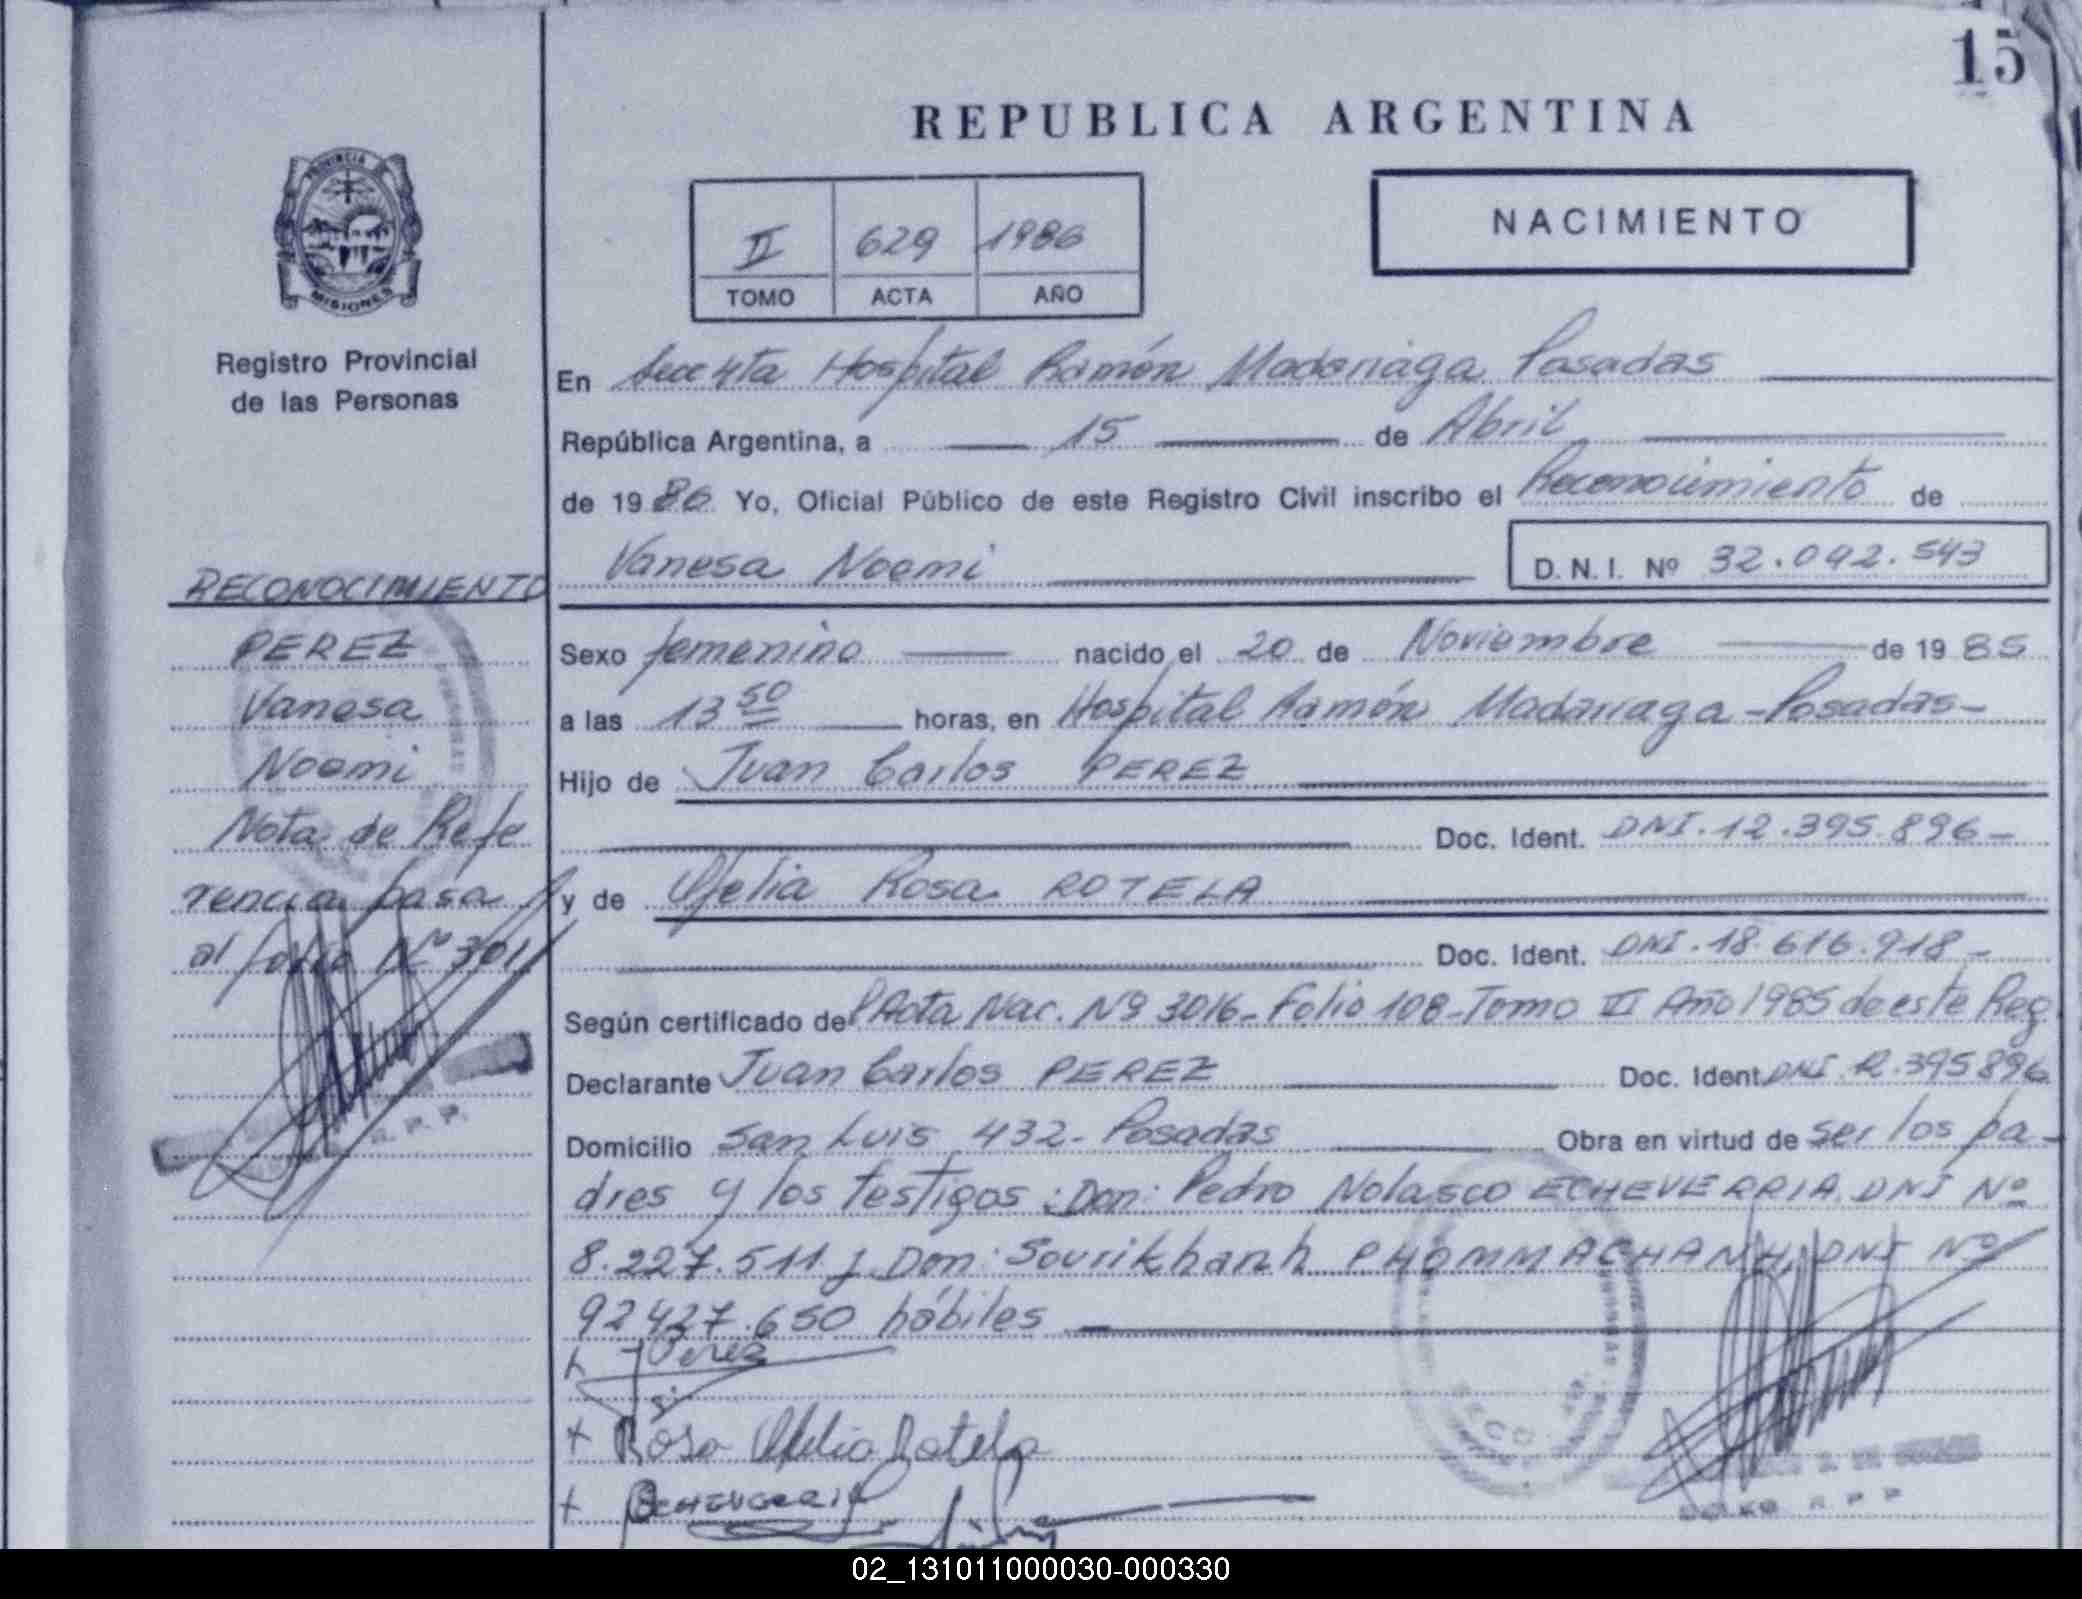 15
REPUBLICA ARGENTINA
PROVINCIA DE
MISIONES
Registro Provincial
de las Personas
II 629 1986
TOMO ACTA AÑO
NACIMIENTO
En Secc 4ta Hospital Ramón Madariaga Posadas
República Argentina, a 15 de Abril
de 1986 Yo, Oficial Público de este Registro Civil inscribo el Reconocimiento de
Vanesa Noemi D.N.I. Nº 32.042.543
Sexo femenino nacido el 20 de Noviembre de 1985
a las 13 50 horas, en Hospital Ramón Madariaga - Posadas -
Hijo de Juan Carlos PEREZ
Doc. Ident. DNI. 12.395.896 -
y de Ofelia Rosa ROTELA
Doc. Ident. DNI. 18.616.918 -
Según certificado de Acta Nac. Nº 3016 - Folio 108 - Tomo VI Año 1985 de este Reg
Declarante Juan Carlos PEREZ Doc. Ident. DNI. 12.395896
Domicilio San Luis 432 - Posadas Obra en virtud de ser los pa-
dres y los testigos: Don: Pedro Nolasco ECHEVERRIA DNI Nº
8.227.511 y Don: Sourikhanh PHOMMACHANH, DNI Nº
92427.650 hábiles
Perez
Rosa Ofelia Rotela
Echeverria
RECONOCIMIENTO
PEREZ
Vanesa
Noemi
Nota de Refe
rencia pasa
al folio Nº 301
R. P. P.
R P P
02_131011000030-000330